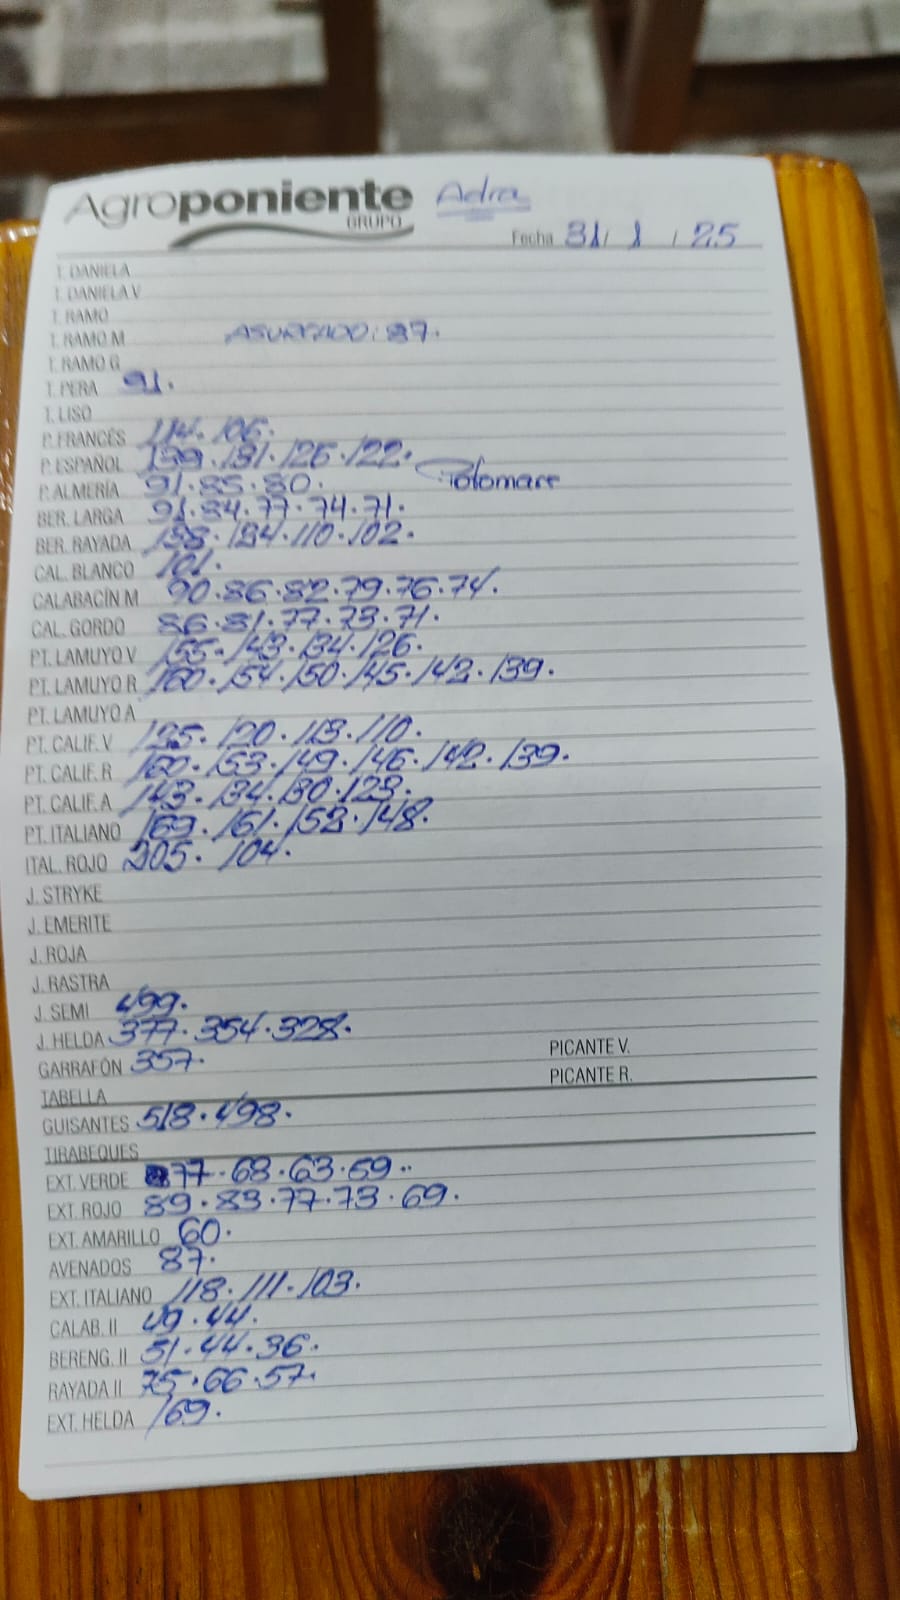 Agroponiente Adra
GRUPO
Fecha 31/ 1 / 25
T. DANIELA
T. DANIELA V
T. RAMO
T. RAMO M ASURCADO: 87.
T. RAMO G
T. PERA 91.
T. LISO
P. FRANCÉS 114. 106.
P. ESPAÑOL 139. 131. 126. 122.
P. ALMERÍA 91. 85. 80.
BER. LARGA 91. 84. 77. 74. 71.
BER. RAYADA 138. 124. 110. 102.
CAL. BLANCO 101.
CALABACÍN M 90. 86. 82. 79. 76. 74.
CAL. GORDO 86. 81. 77. 73. 71.
PT. LAMUYO V 155. 143. 134. 126.
PT. LAMUYO R 160. 154. 150. 145. 142. 139.
PT. LAMUYO A
PT. CALIF. V 125. 120. 113. 110.
PT. CALIF. R 160. 153. 149. 146. 142. 139.
PT. CALIF. A 143. 134. 130. 123.
PT. ITALIANO 169. 161. 152. 148.
ITAL. ROJO 205. 104.
J. STRYKE
J. EMERITE
J. ROJA
J. RASTRA
J. SEMI 499.
J. HELDA 377. 354. 328.
GARRAFÓN 357. PICANTE V.
TABELLA PICANTE R.
GUISANTES 518. 498.
TIRABEQUES
EXT. VERDE 77. 68. 63. 59..
EXT. ROJO 89. 83. 77. 73. 69.
EXT. AMARILLO 60.
AVENADOS 87.
EXT. ITALIANO 118. 111. 103.
CALAB. II 49. 44.
BERENG. II 51. 44. 36.
RAYADA II 75. 66. 57.
EXT. HELDA 169.